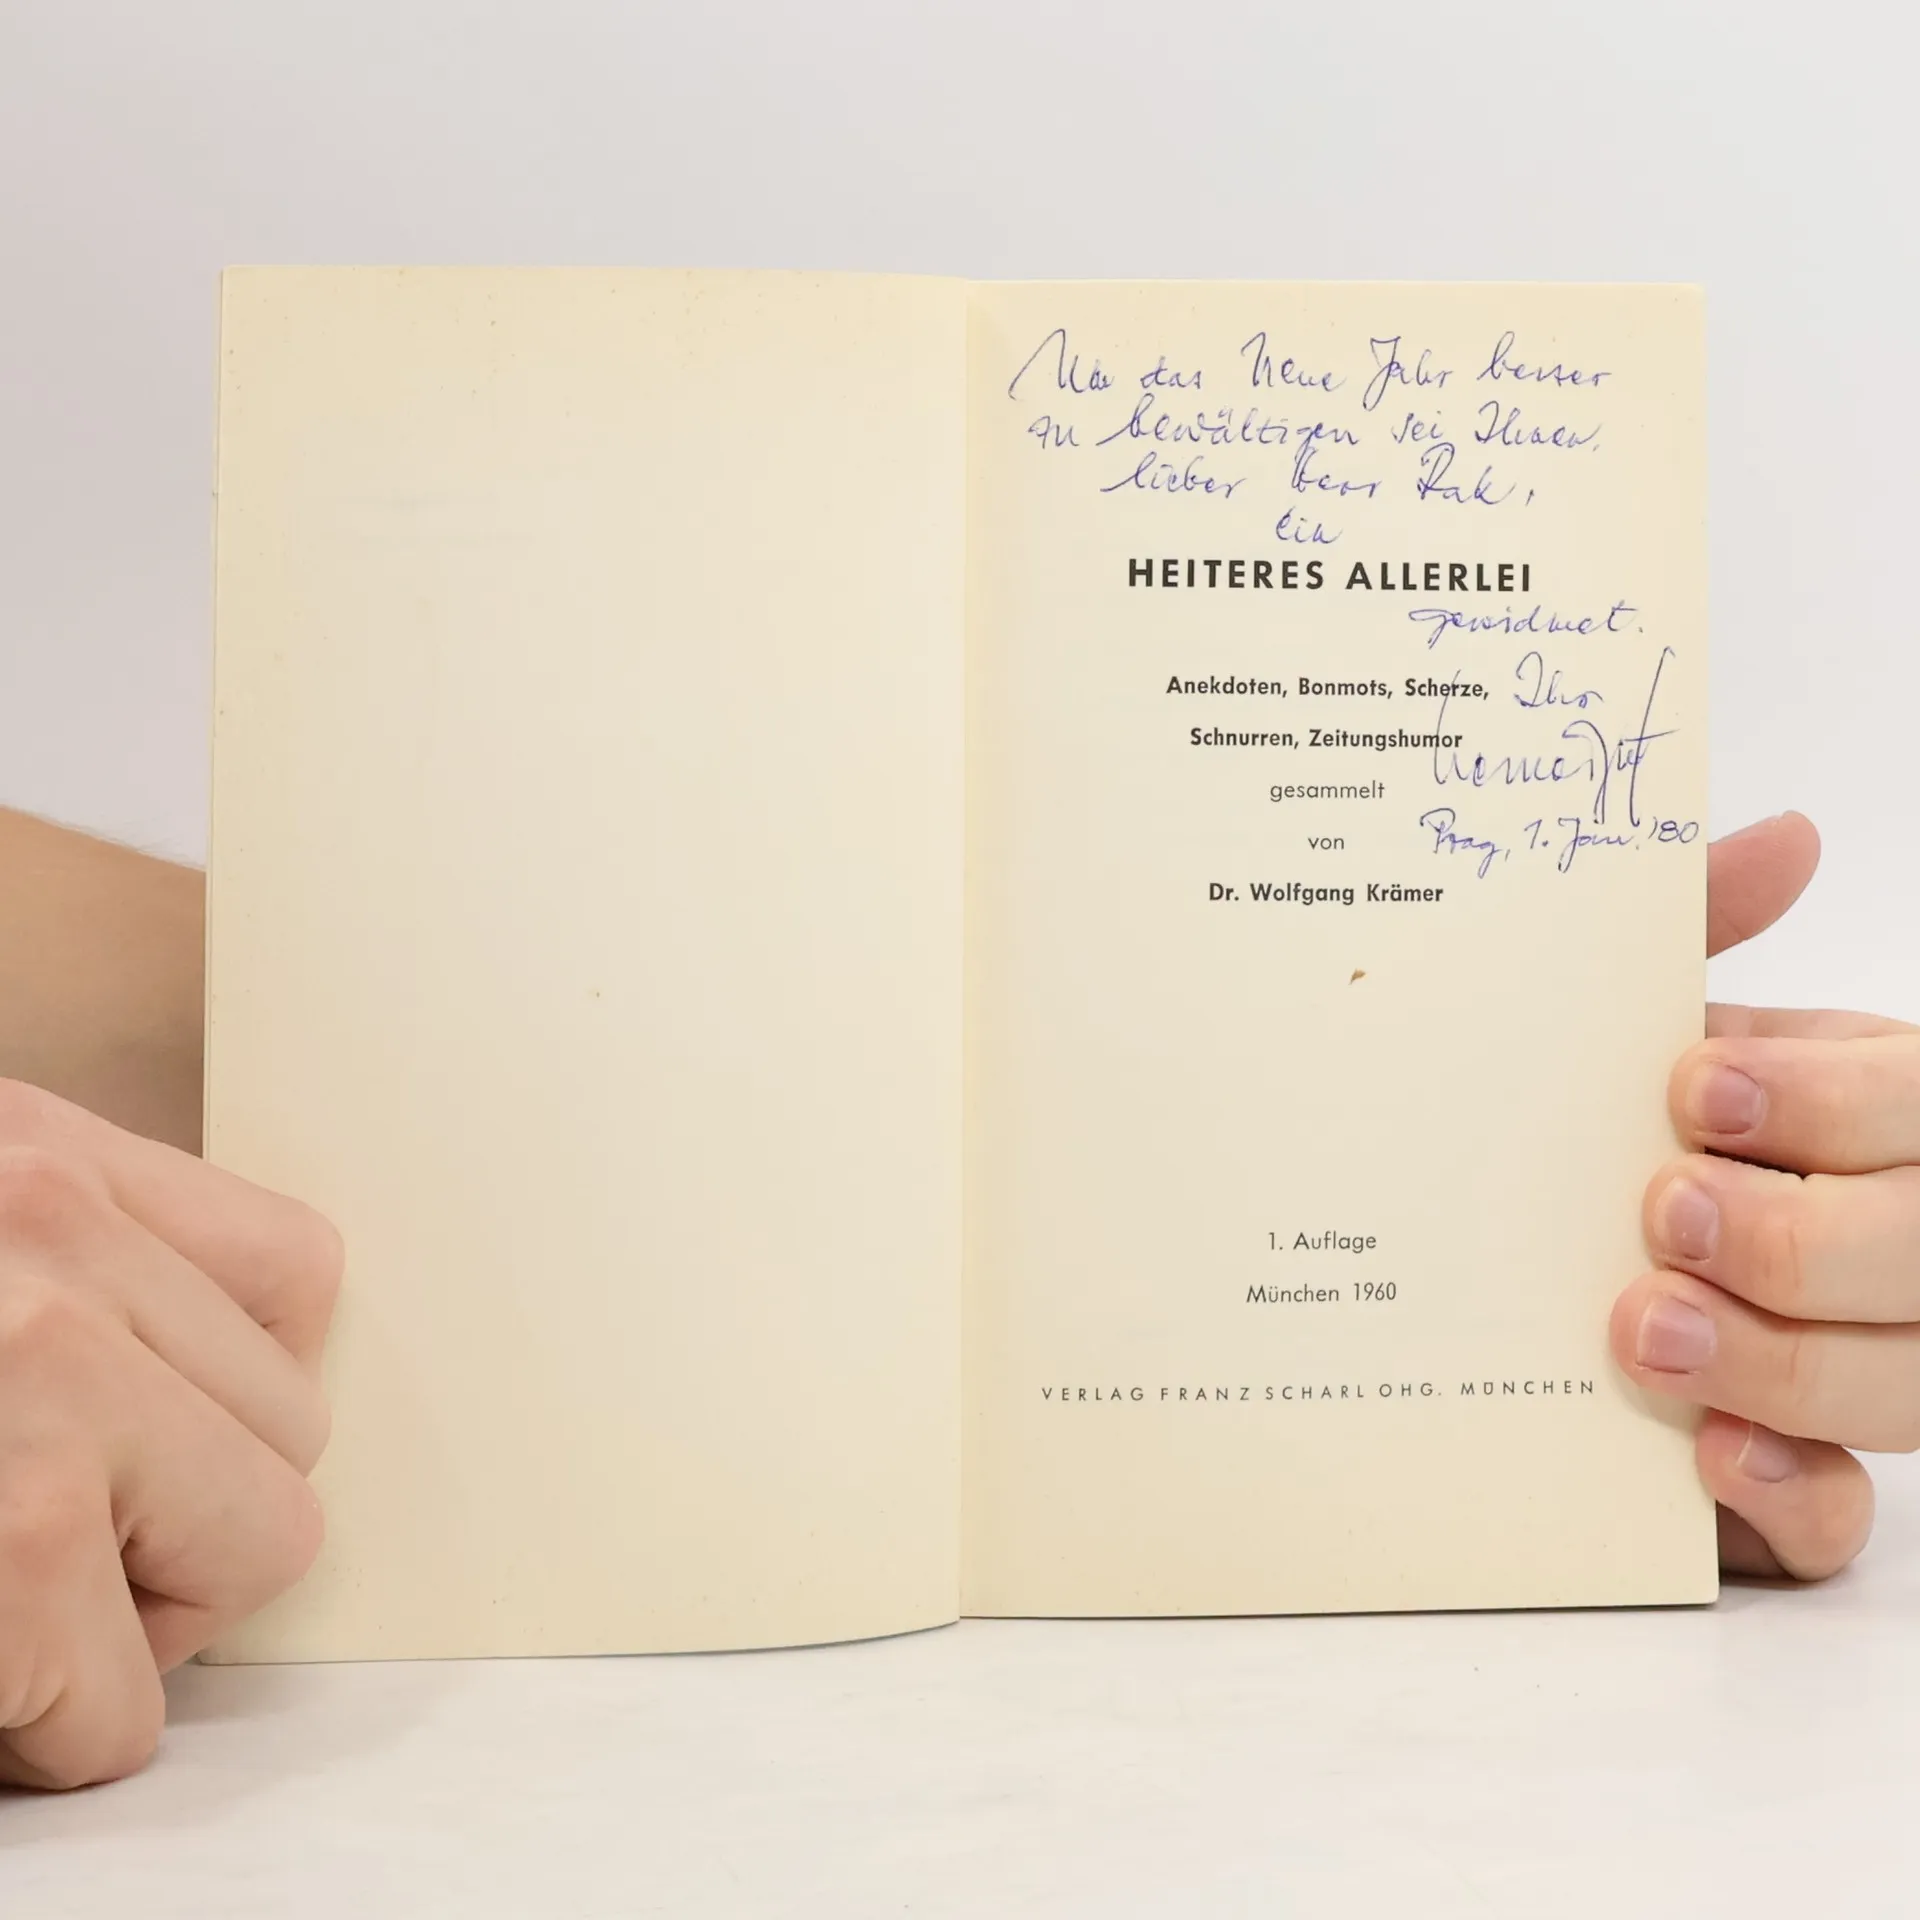 Um das Neue Jahr besser
zu bewältigen sei Ihnen,
lieber Herr Rak,
ein
HEITERES ALLERLEI
gewidmet.
Anekdoten, Bonmots, Scherze,
Ihr
Schnurren, Zeitungshumor
gesammelt
von
Prag, 1. Jan. '80
Dr. Wolfgang Krämer
1. Auflage
München 1960
VERLAG FRANZ SCHARL OHG. MÜNCHEN